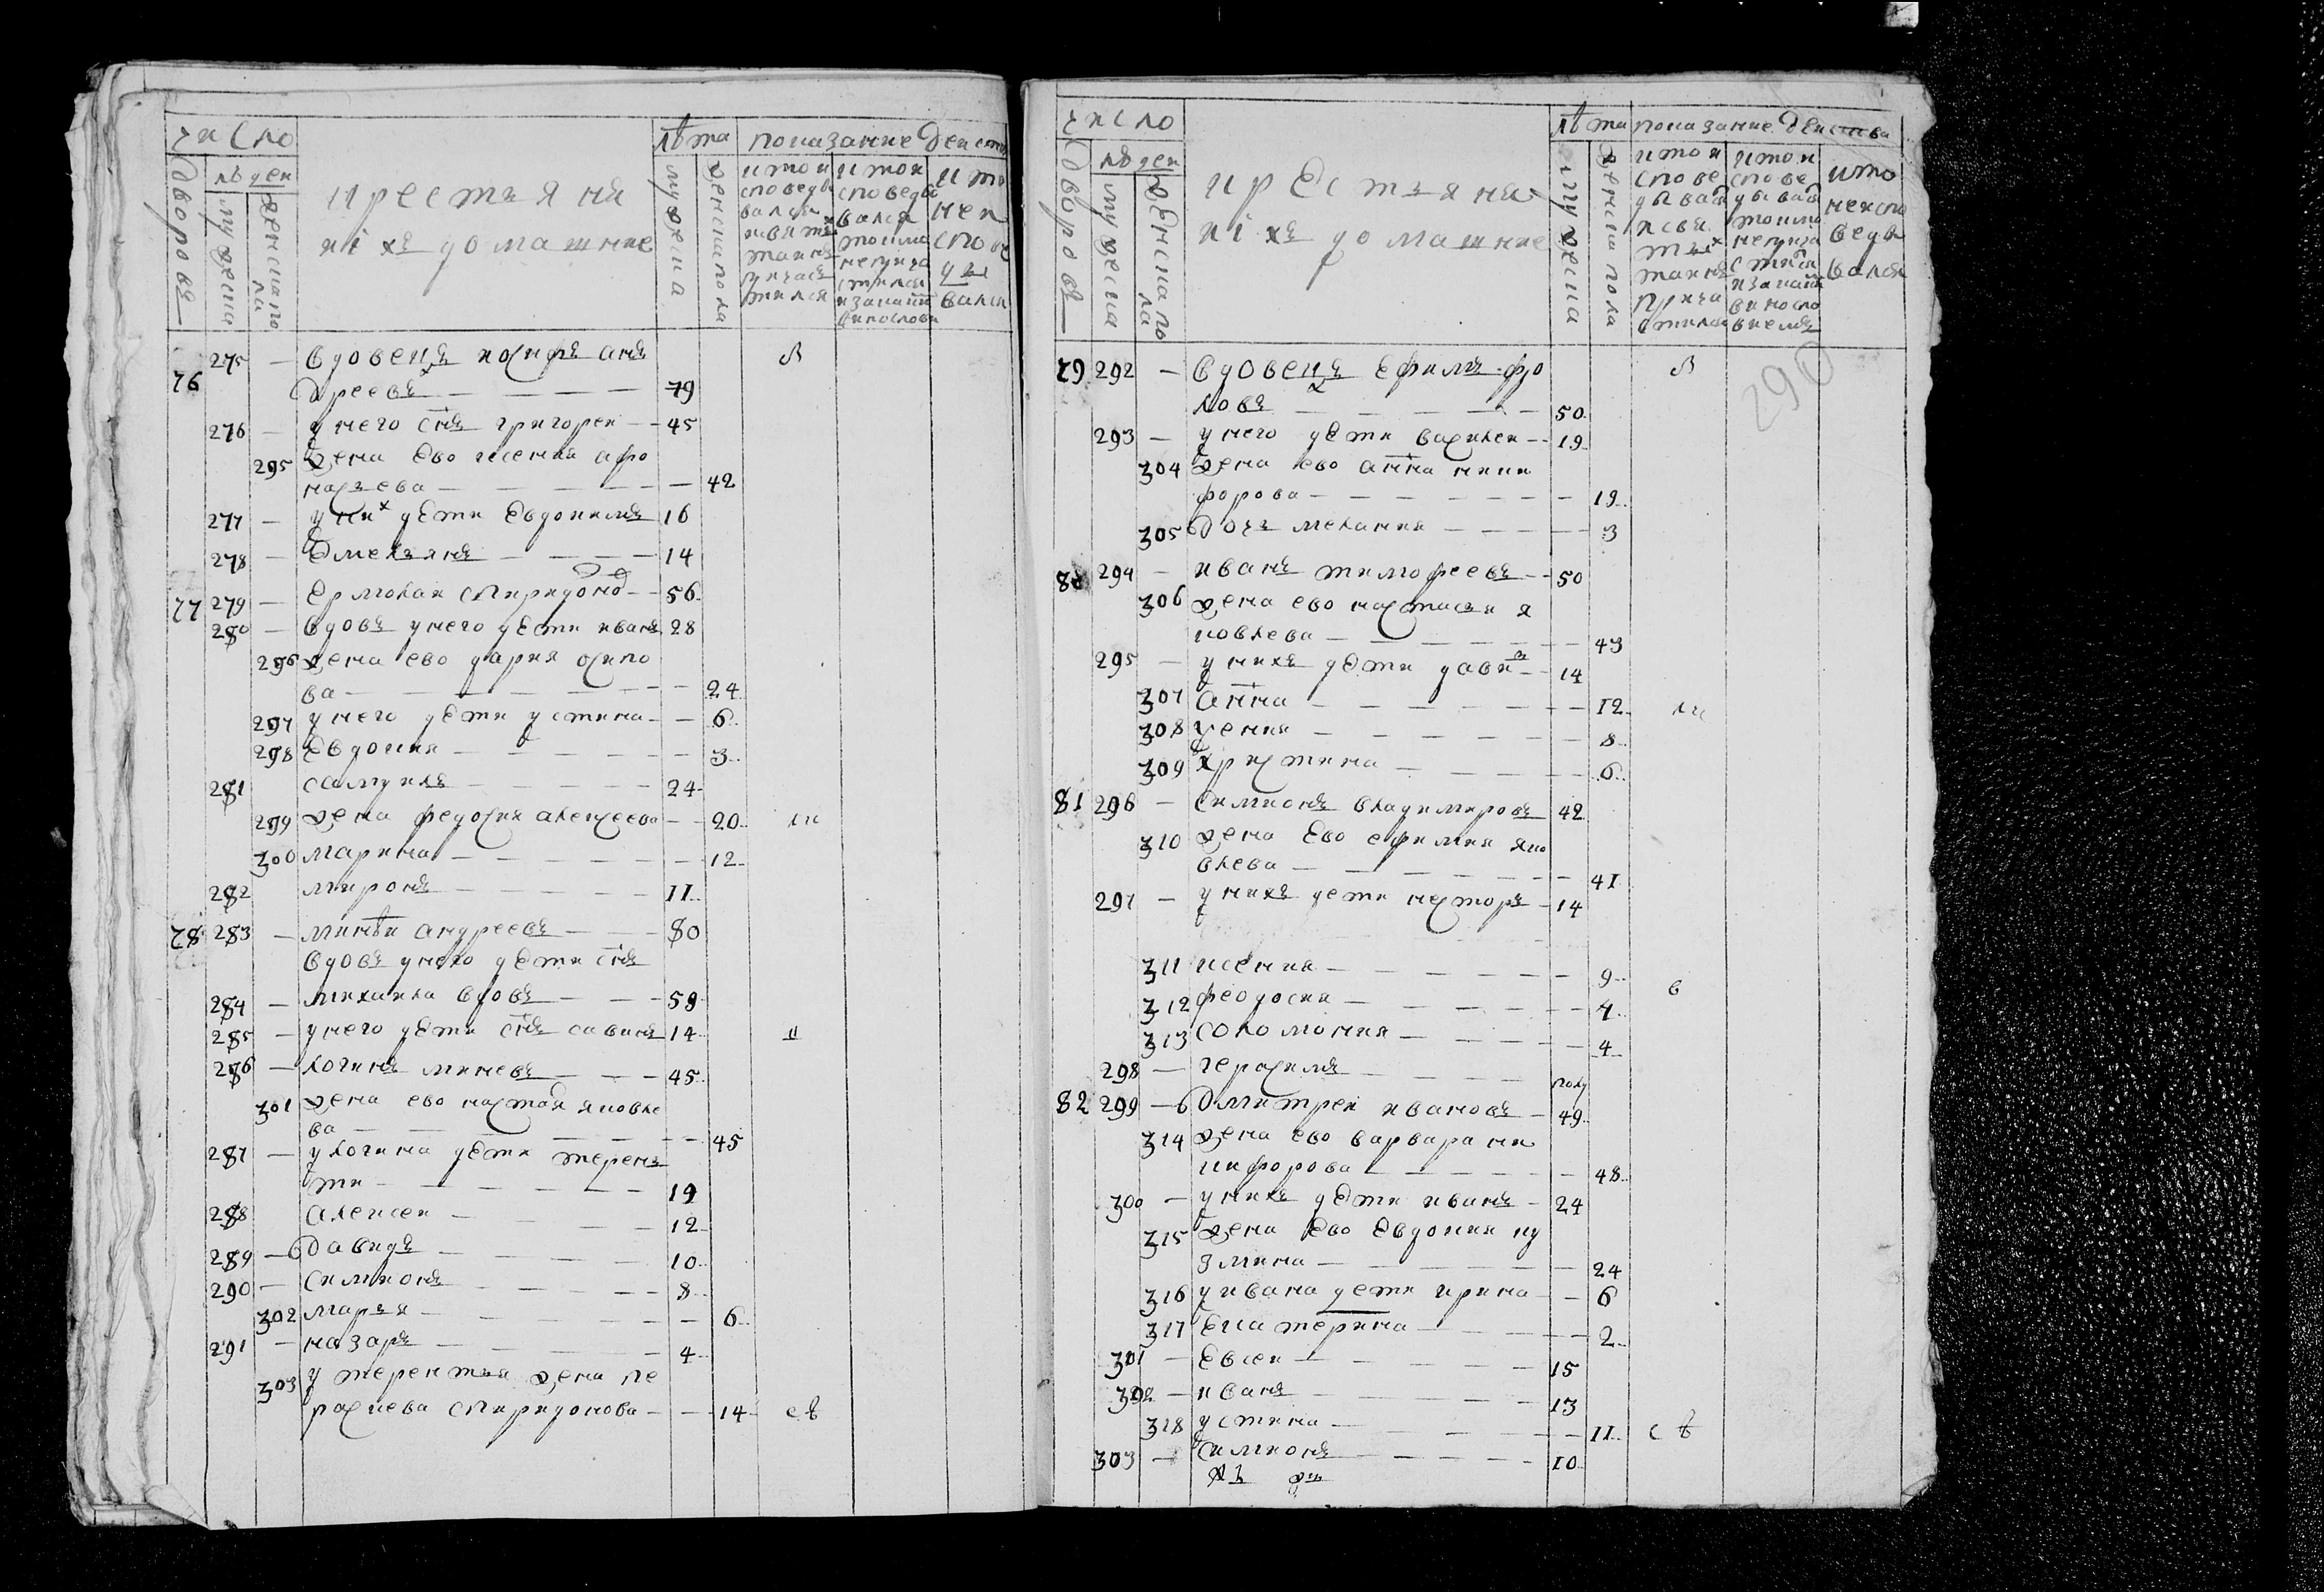 число
лѣта показание действ
дворовъ
людей
мужеска
женска пола
крестьяня
и ихъ домашние
мужеска
женска пола
кто исповедывался и святыхъ таинъ причастился
кто исповедывался токмо не причастился и за каким винословием
кто не исповедывался
76 275 — вдовецъ иосифъ ан
дреевъ — 79
276 — у него снъ григореи — 45
295 жена ево ксения афо
насьева — 42
277 — у них дети евдокимъ 16
278 — Емельянъ — 14
77 279 — Ермолаи спиридоно — 56
280 — вдовъ у него дети иванъ 28
296 жена ево дария осипо
ва — 24
297 у него дети устина — 6
298 Евдокия — 3
281 самуилъ — 24
299 жена федосия алексеева — 20
300 марина — 12
282 миронъ — 11
78 283 — минѣи андреевъ — 80
вдовъ у него дети снъ
284 — михаила вдовъ — 59
285 — у него дети снъ савинъ 14
286 — логинъ миневъ — 45
301 жена ево настася яковле
ва — 45
287 — у логина дети терень
ти — 19
288 алексеи — 12
289 — давидъ — 10
290 — симионъ — 8
302 марья — 6
291 — назаръ — 4
303 у терентья жена пе
раскева спиридонова — 14
число
лѣта показание действа
дворовъ
людей
мужеска
женска пола
крестьяня
и ихъ домашние
мужеска
женска пола
кто исповедывался и святыхъ таинъ причастился
кто исповедывался токмо не причастился и за каким винословием
кто не исповедывался
290
79 292 — вдовецъ Ефимъ фро
ловъ — 50
293 — у него дети василеи — 19
304 жена ево анна ники
форова — 19
305 дочь мелания — 3
80 294 — иванъ тимофеевъ — 50
306 жена ево настасья я
ковлева — 43
295 — у нихъ дети давид — 14
307 анна — 12
308 — 8
309 христина — 6
81 296 — симионъ владимировъ 42
310 жена Ево ефимия яко
влева — 41
297 — у нихъ дети несторъ — 14
311 ксения — 9
312 феодосия — 7
313 соломония — 4
298 — герасимъ — полу
82 299 — дмитреи ивановъ — 49
314 жена ево варвара ни
кифорова — 48
300 — у нихъ дети иванъ — 24
315 жена Ево Евдокия ку
змина — 24
316 у ивана дети ирина — 6
317 Екатерина — 2
301 — Евсеи — 15
302 — иванъ — 13
318 устина — 11
303 — симионъ — 10